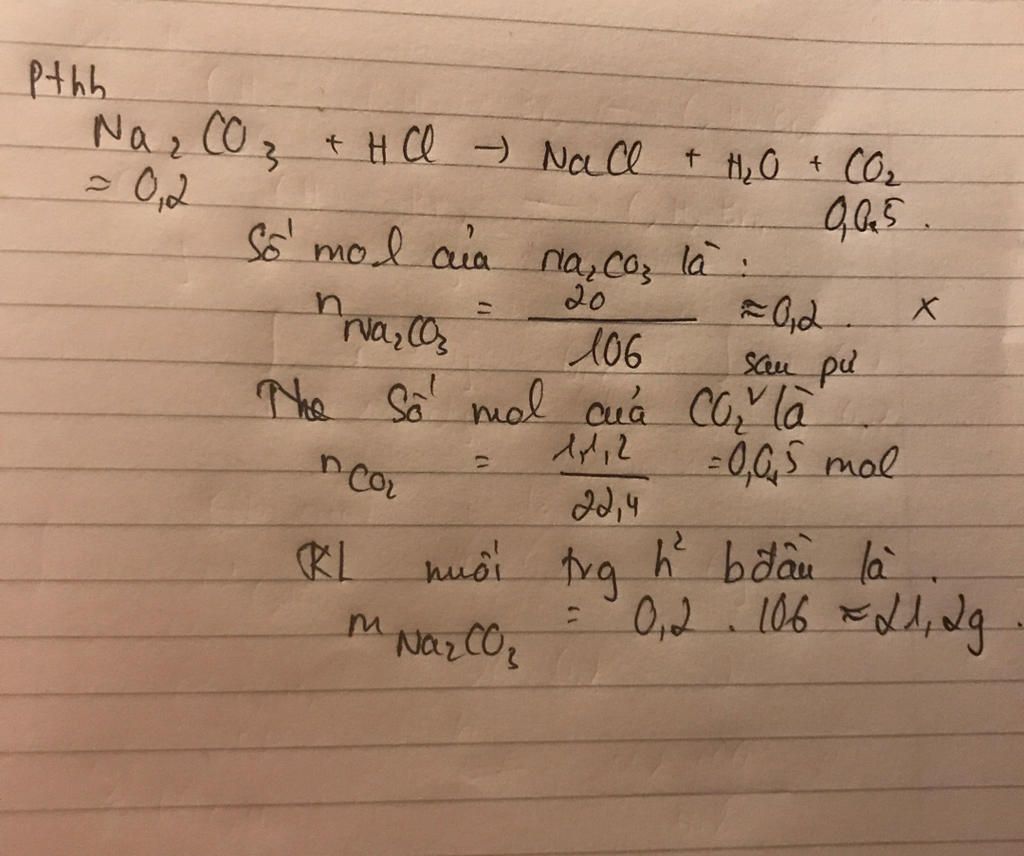 Pthh
Na₂CO₃ + HCl → NaCl + H₂O + CO₂
= 0,2 0,0.5.
Số mol của Na₂CO₃ là :
n Na₂CO₃ = 20 / 106 ≈ 0,2. x
sau pư
Số mol của CO₂ là.
n CO₂ = 1,1,2 / 22,4 = 0,0,5 mol
KL muối trg h² bđầu là.
m Na₂CO₃ = 0,2 . 106 ≈ 21,2g.